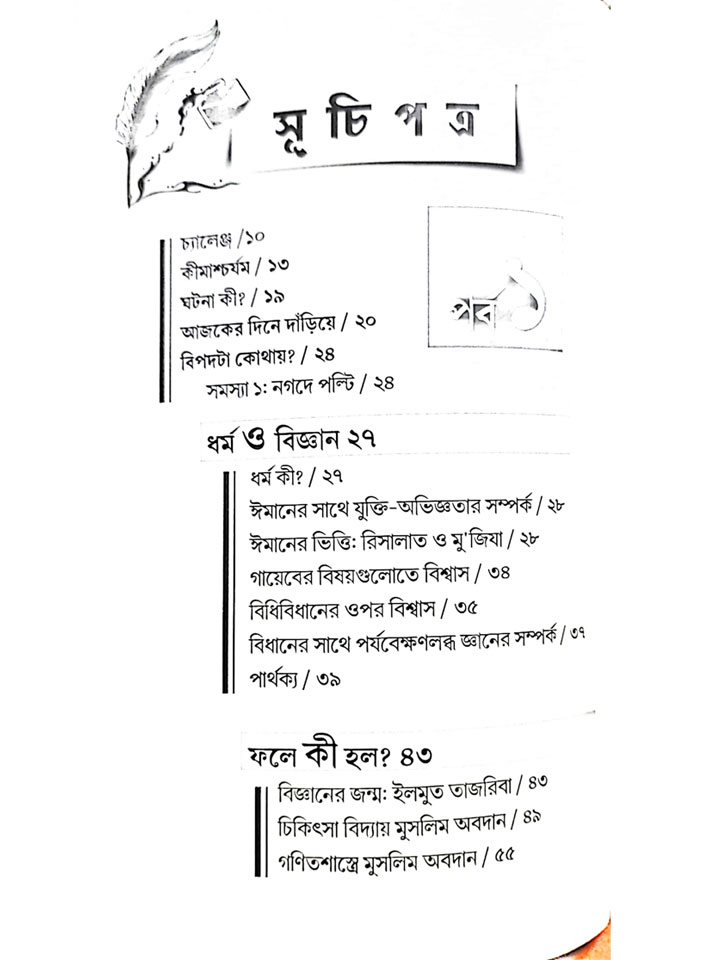 সূচিপত্র
পর্ব ১
চ্যালেঞ্জ /১০
কীমাশ্চর্যম / ১৩
ঘটনা কী? / ১৯
আজকের দিনে দাঁড়িয়ে / ২০
বিপদটা কোথায়? / ২৪
সমস্যা ১: নগদে পল্টি / ২৪
ধর্ম ও বিজ্ঞান ২৭
ধর্ম কী? / ২৭
ঈমানের সাথে যুক্তি-অভিজ্ঞতার সম্পর্ক / ২৮
ঈমানের ভিত্তি: রিসালাত ও মু'জিযা / ২৮
গায়েবের বিষয়গুলোতে বিশ্বাস / ৩৪
বিধিবিধানের ওপর বিশ্বাস / ৩৫
বিধানের সাথে পর্যবেক্ষণলব্ধ জ্ঞানের সম্পর্ক / ৩৭
পার্থক্য / ৩৯
ফলে কী হল? ৪৩
বিজ্ঞানের জন্ম: ইলমুত তাজরিবা / ৪৩
চিকিৎসা বিদ্যায় মুসলিম অবদান / ৪৯
গণিতশাস্ত্রে মুসলিম অবদান / ৫৫